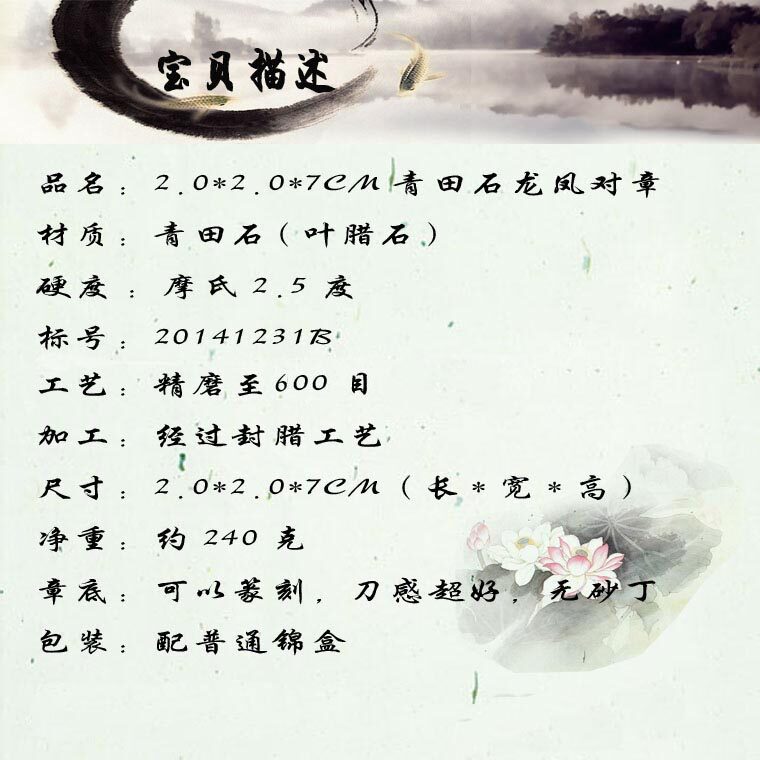 宝贝描述
品名：2.0*2.0*7CM青田石龙凤对章
材质：青田石（叶腊石）
硬度：摩氏2.5度
标号：20141231B
工艺：精磨至600目
加工：经过封腊工艺
尺寸：2.0*2.0*7CM（长*宽*高）
净重：约240克
章底：可以篆刻，刀感超好，无砂丁
包装：配普通锦盒